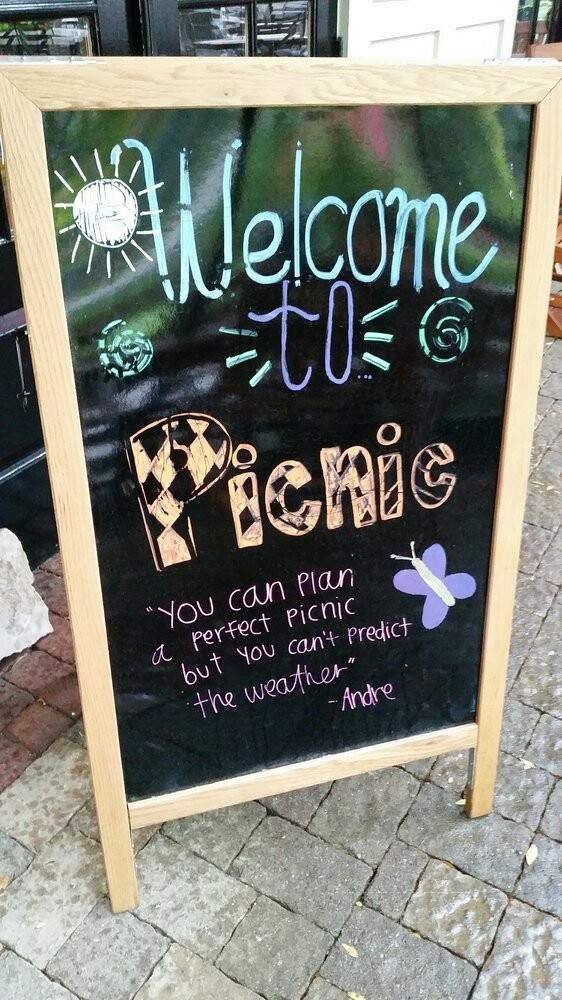 Welcome
to...
Picnic
"You can plan
a perfect picnic
but you can't predict
the weather"
-Andre